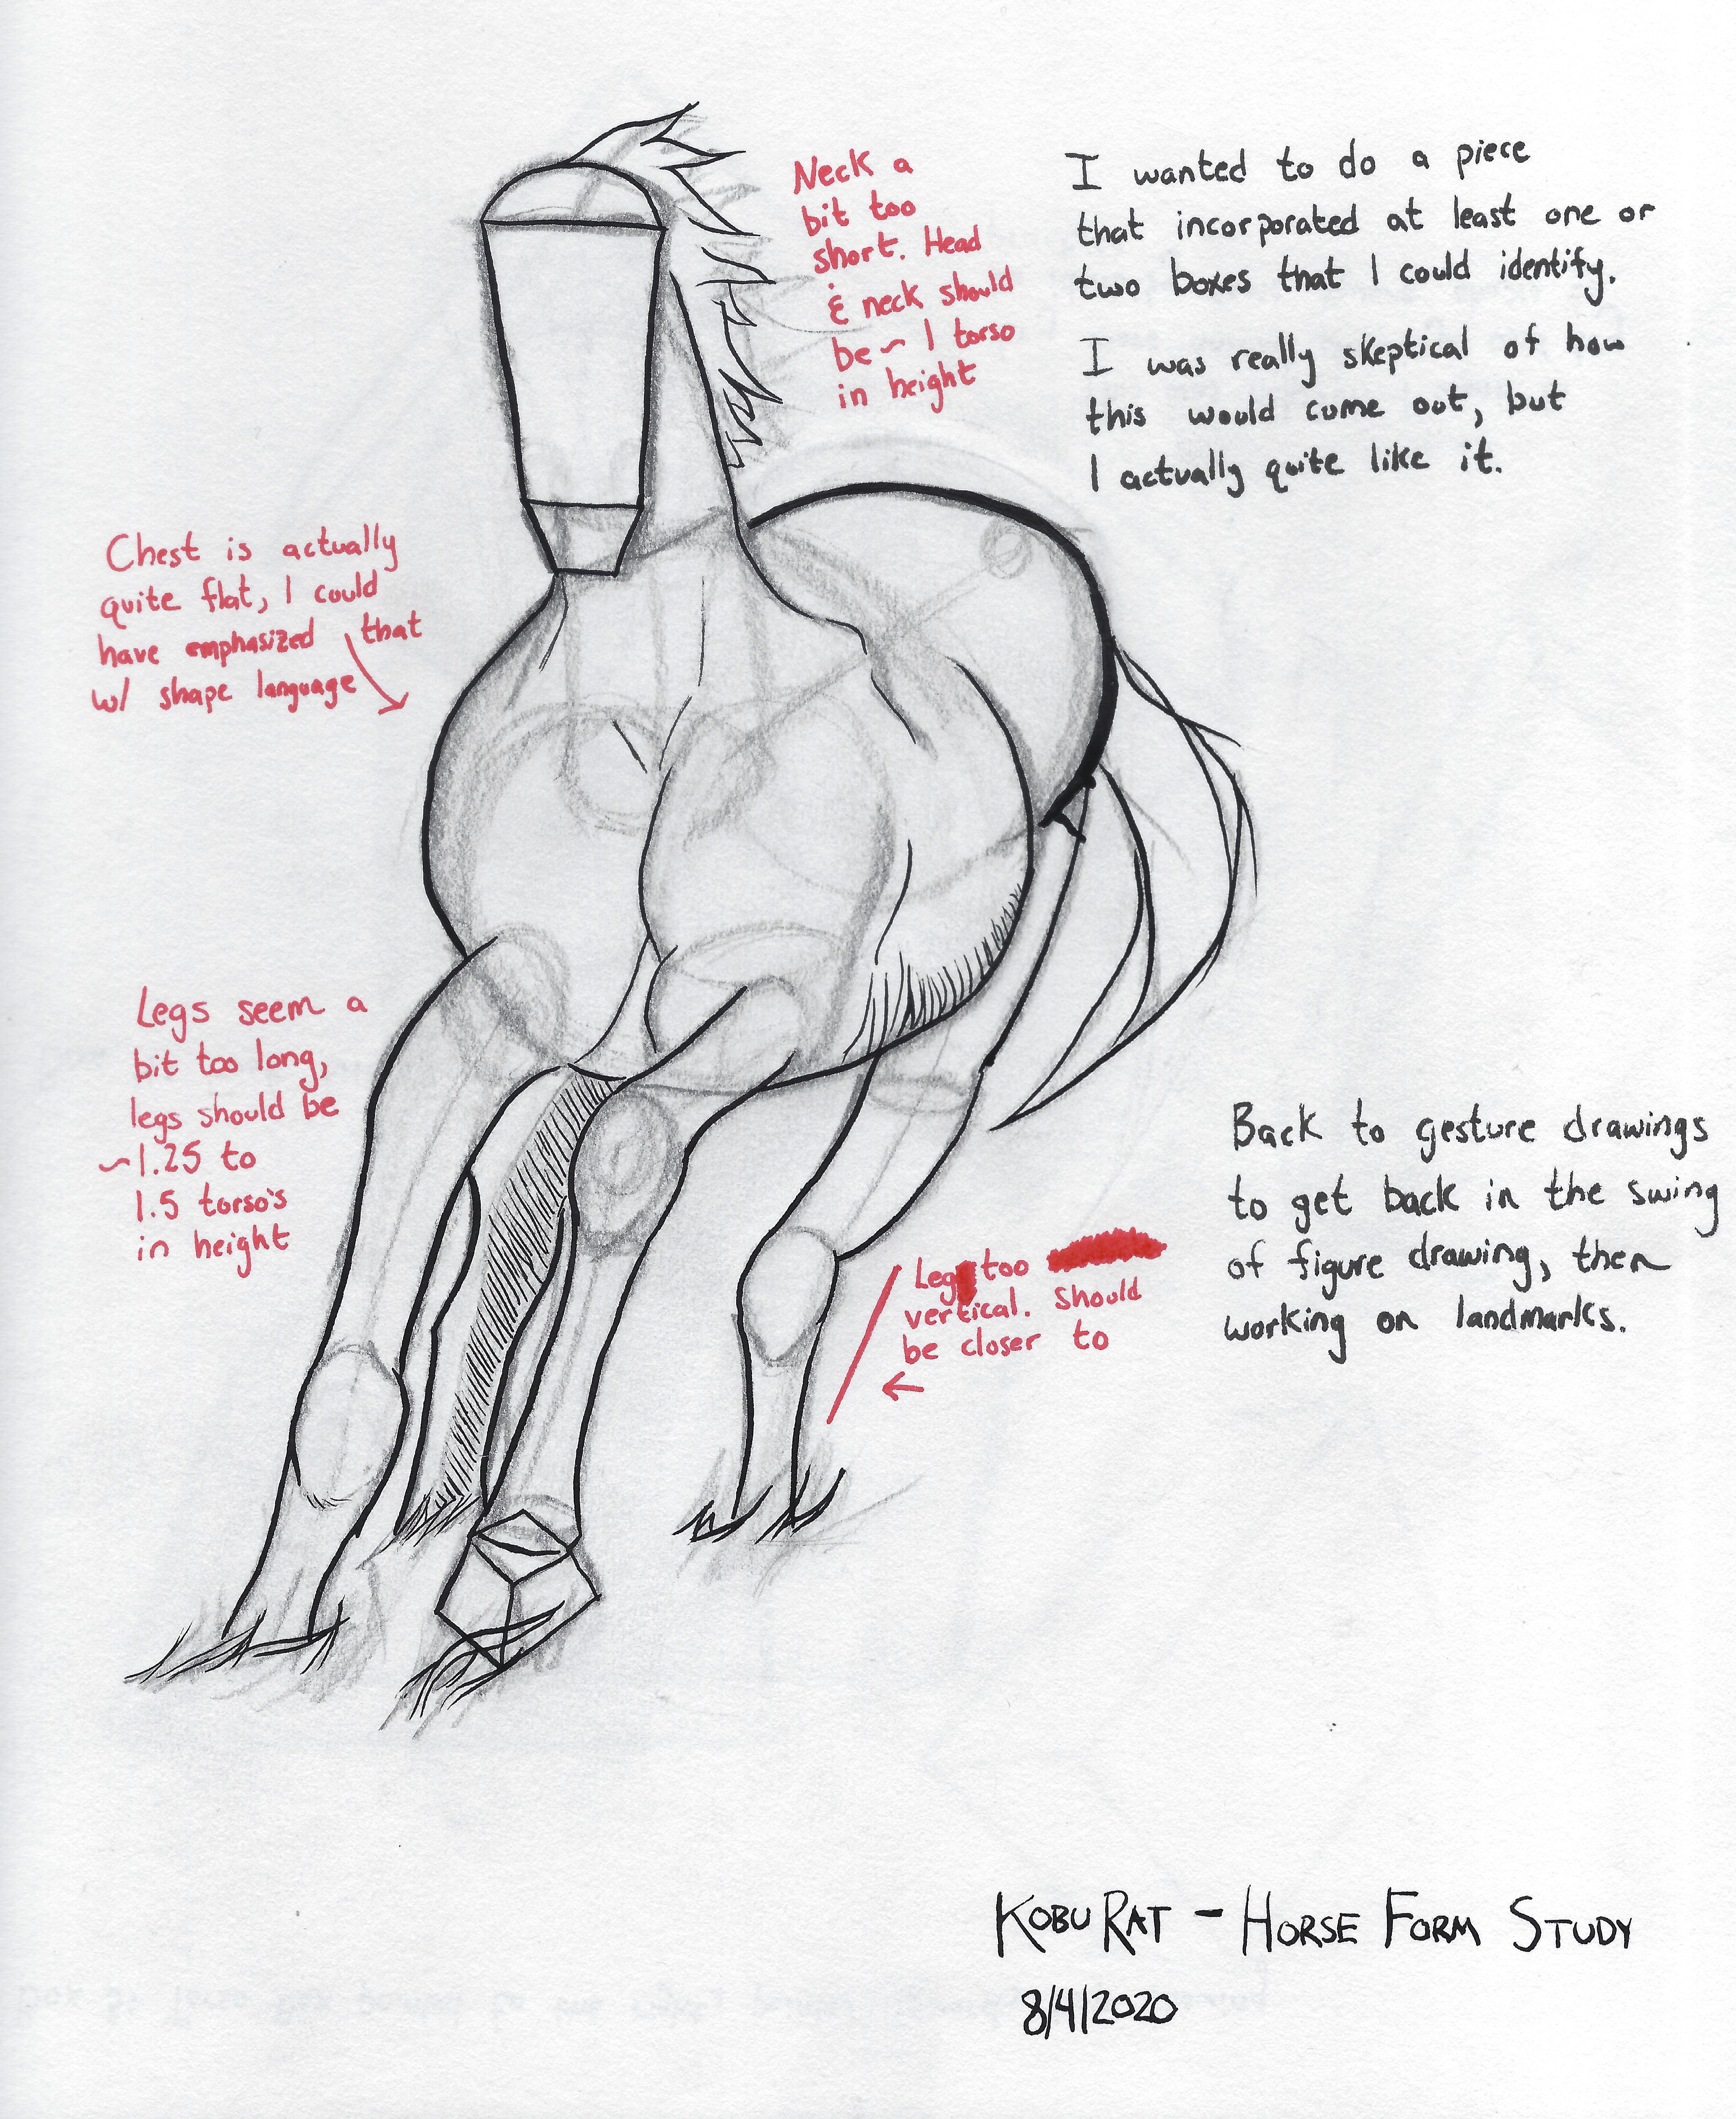 Neck a
bit too
short. Head
& neck should
be ~ 1 torso
in height
I wanted to do a piece
that incorporated at least one or
two boxes that I could identify.
I was really skeptical of how
this would come out, but
I actually quite like it.
Chest is actually
quite flat, I could
have emphasized that
w/ shape language
Legs seem a
bit too long,
legs should be
~1.25 to
1.5 torso's
in height
Leg too
vertical. Should
be closer to
Back to gesture drawings
to get back in the swing
of figure drawing, then
working on landmarks.
KOBU RAT - HORSE FORM STUDY
8/4/2020